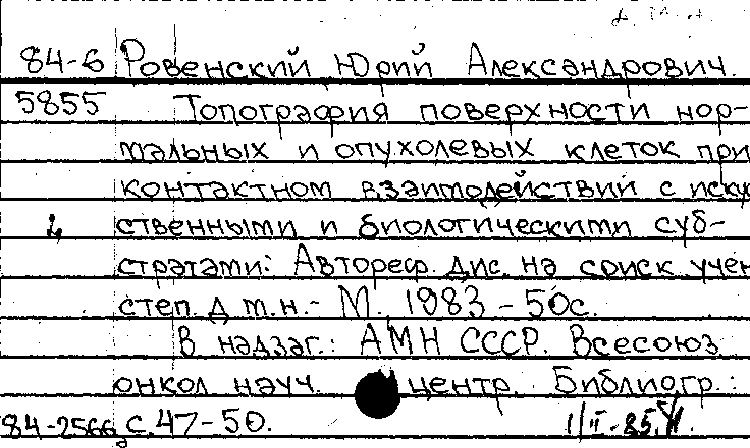 84-6 Ровенский Юрий Александрович.
5855 Топография поверхности нор-
мальных и опухолевых клеток при
контактном взаимодействий с иску
ственными и биологическими суб-
стратами: Автореф. дис. на соиск учен
степ. д м.н. - М., 1983 - 50с.
В надзаг.: АМН СССР. Всесоюз
онкол науч. центр. Библиогр.:
84-2566 с. 47-50.